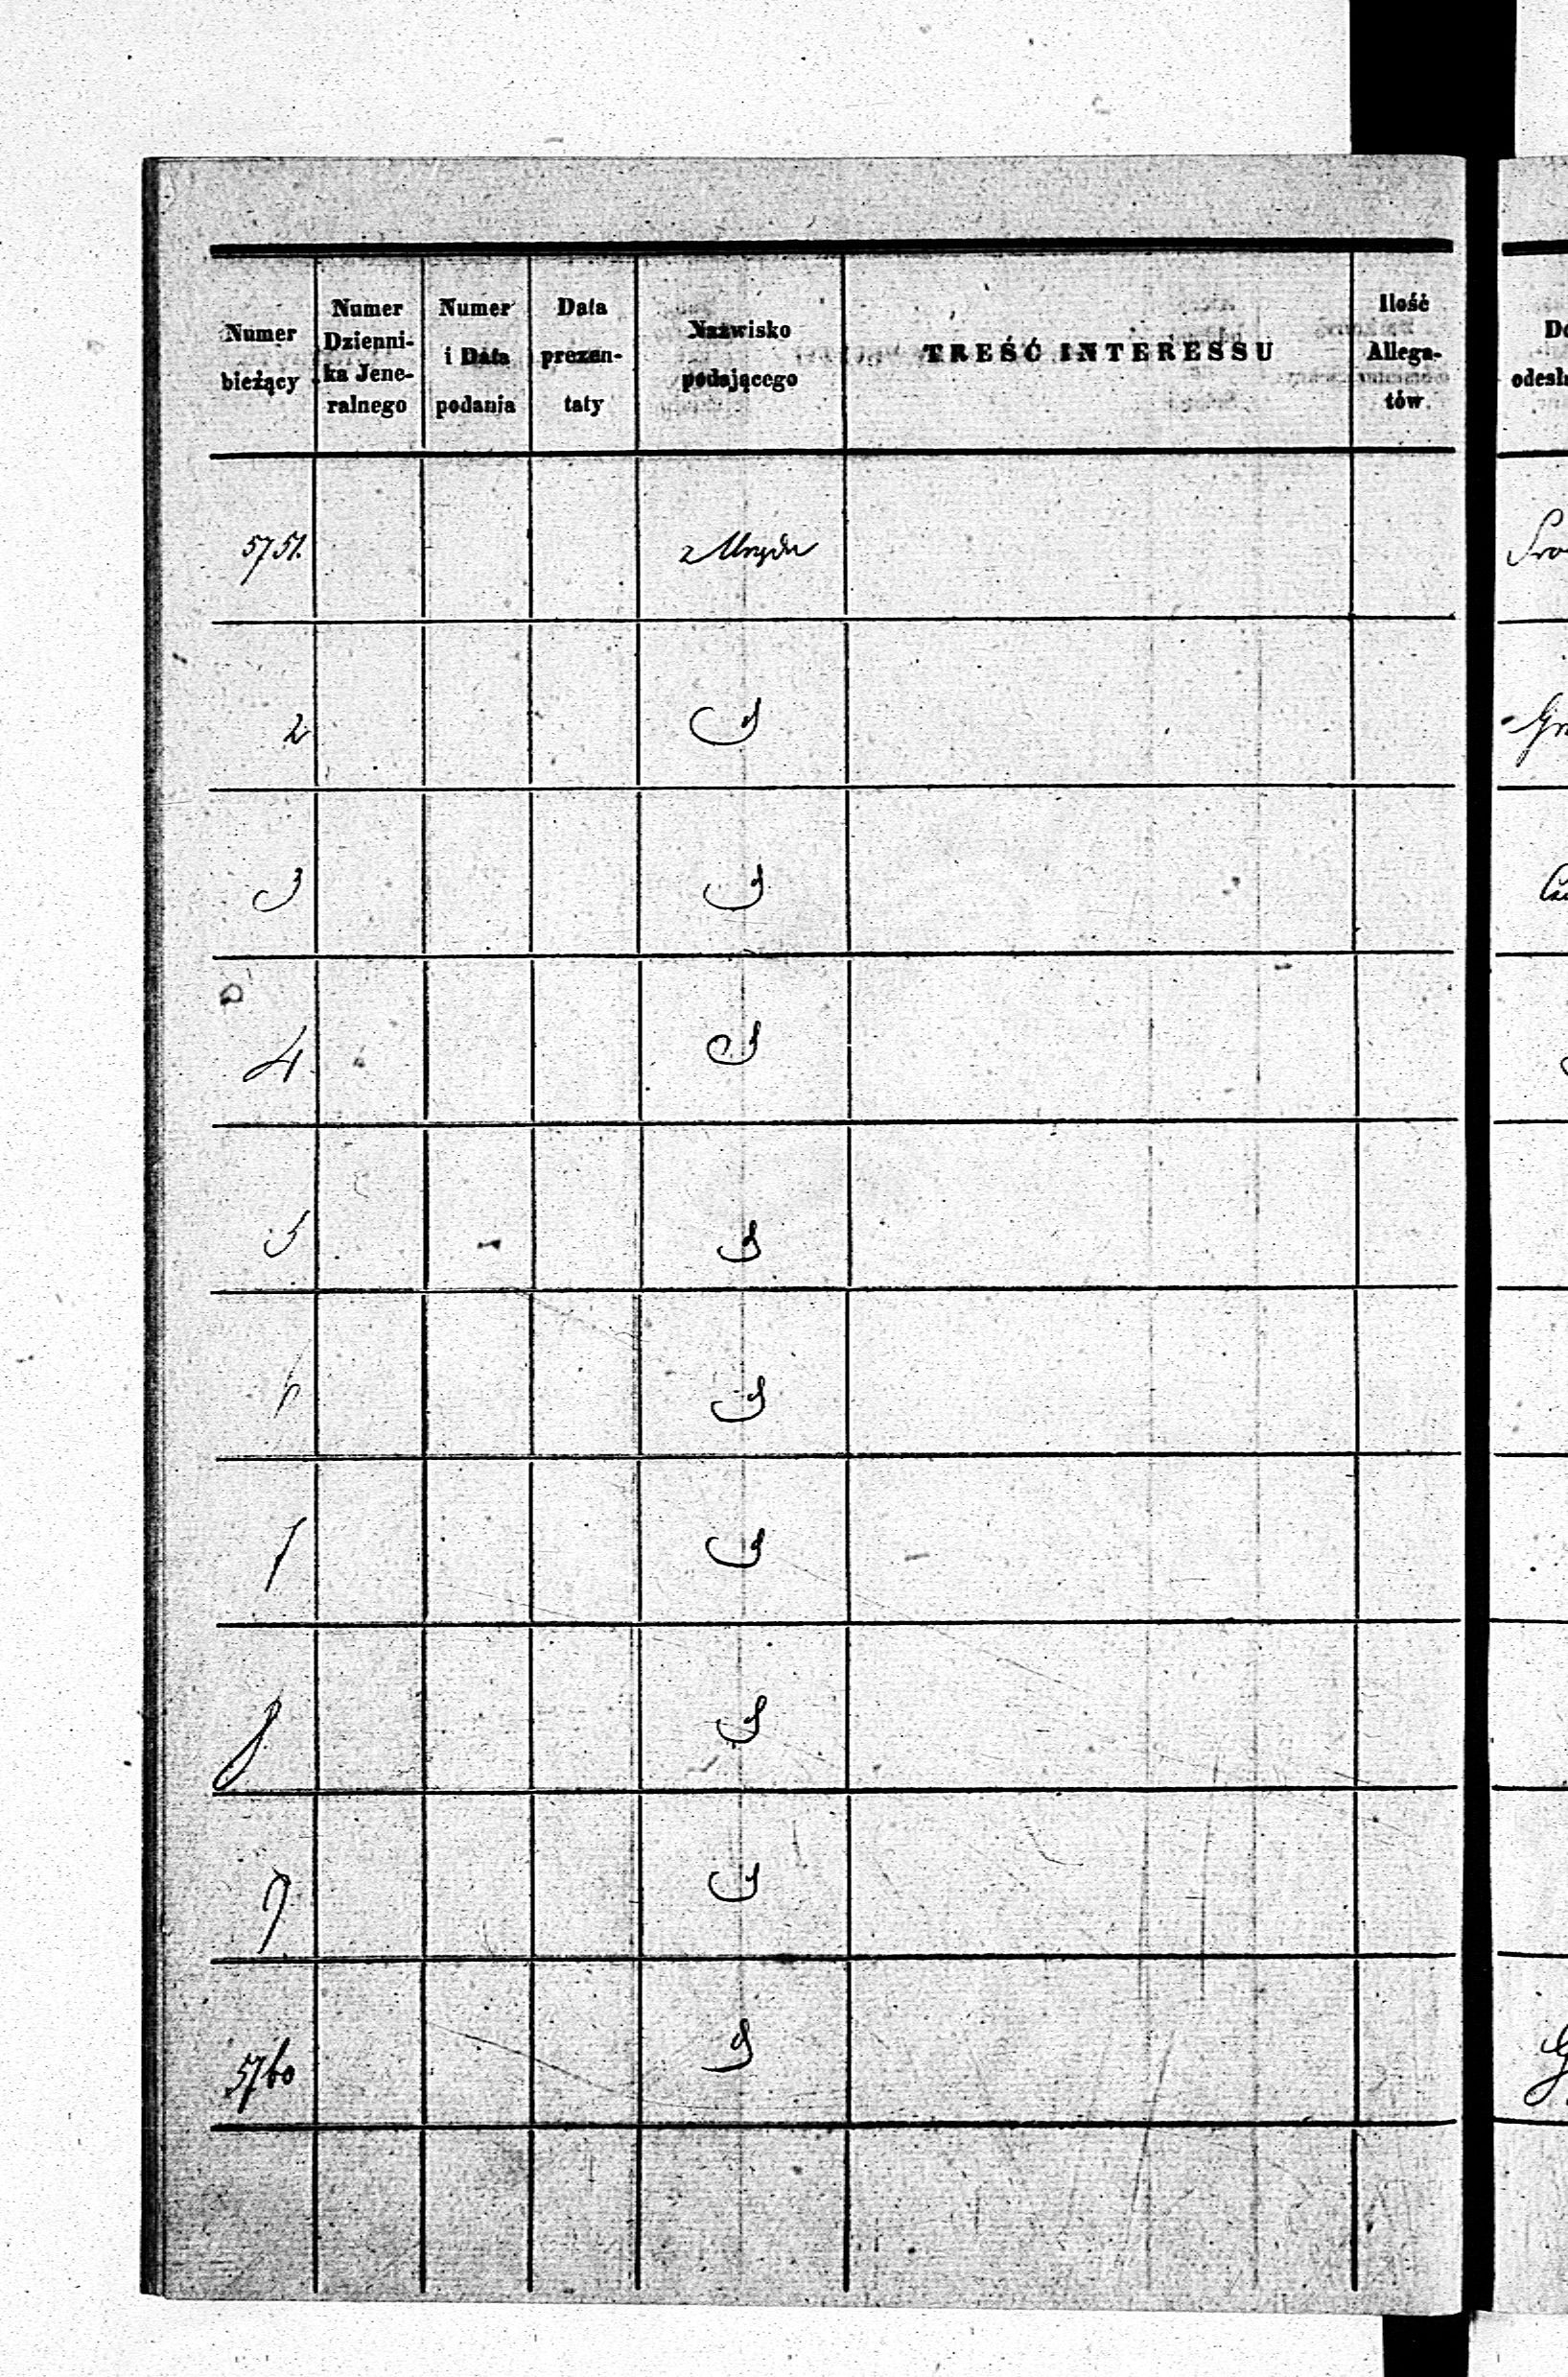 Numer bieżący
Numer Dzienni- ka Jene- ralnego
Numer i Data podania
Data prezen- taty
Nazwisko podającego
TREŚĆ INTERESSU
Ilość Allega- tów
5751. z Urzędu
2
3
4
5
6
7
8
9
5760